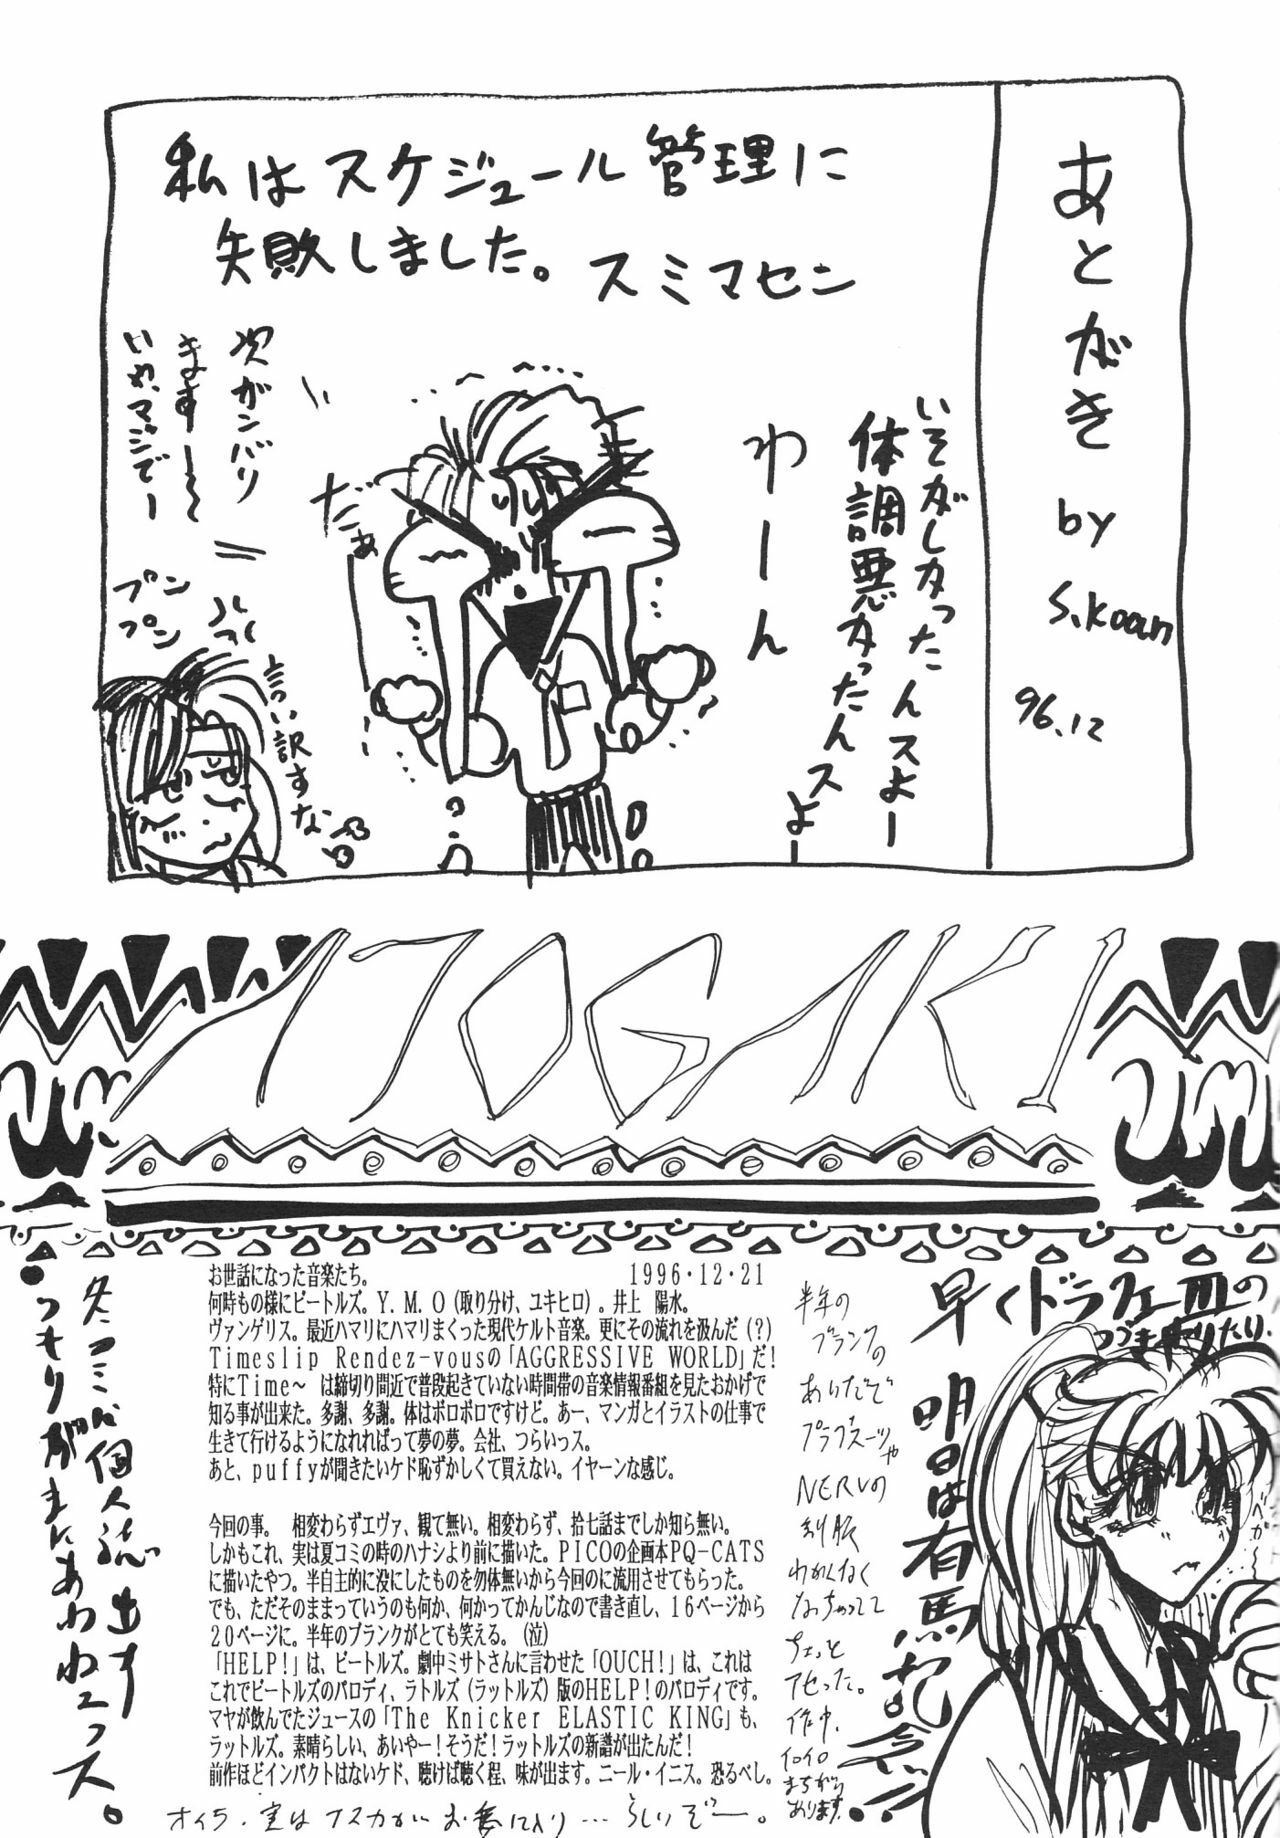 あとがき by
S.Koan
96.12
私はスケジュール管理に
失敗しました。スミマセン
いそがしかったんスよー
体調悪かったんスよー
わーん
だぁー
次ガンバり
ます〜〜
いや、マジでー
プンプン
言い訳すな
ATOGAKI
お世話になった音楽たち。 1996・12・21
何時もの様にビートルズ。Y.M.O(取り分け、ユキヒロ)。井上 陽水。
ヴァンゲリス。最近ハマりにハマりまくった現代ケルト音楽。更にその流れを汲んだ(?)
Timeslip Rendez-vousの「AGGRESSIVE WORLD」だ!
特にTime〜 は締切り間近で普段起きていない時間帯の音楽情報番組を見たおかげで
知る事が出来た。多謝、多謝。体はボロボロですけど。あー、マンガとイラストの仕事で
生きて行けるようになれればって夢の夢。会社、つらいっス。
あと、puffyが聞きたいケド恥ずかしくて買えない。イヤーンな感じ。
今回の事。 相変わらずエヴァ、観て無い。相変わらず、拾七話までしか知ら無い。
しかもこれ、実は夏コミの時のハナシより前に描いた。PICOの企画本PQ-CATS
に描いたやつ。半自主的に没にしたものを勿体無いから今回のに流用させてもらった。
でも、ただそのままっていうのも何か、何かってかんじなので書き直し、16ページから
20ページに。半年のブランクがとても笑える。(泣)
「HELP!」は、ビートルズ。劇中ミサトさんに言わせた「OUCH!」は、これは
これでビートルズのパロディ、ラトルズ(ラットルズ)版のHELP!のパロディです。
マヤが飲んでたジュースの「The Knicker ELASTIC KING」も、
ラットルズ。素晴らしい、あいやー!そうだ!ラットルズの新譜が出たんだ!
前作ほどインパクトはないケド、聴けば聴く程、味が出ます。ニール・イニス。恐るべし。
早くドラクエIIIの
つづきやりたり、
明日は有馬記念!!
半年の
ブランクの
あいだで
プラグスーツや
NERVの
制服
わかんなく
なっちゃってて
ちょっと
アセった。
作中、
イロイロ
まちがって
おります。
冬コミに個人誌出す
つもりがまにあわねェっス。
オイラ、実はアスカがお気に入り…らしいぞー。